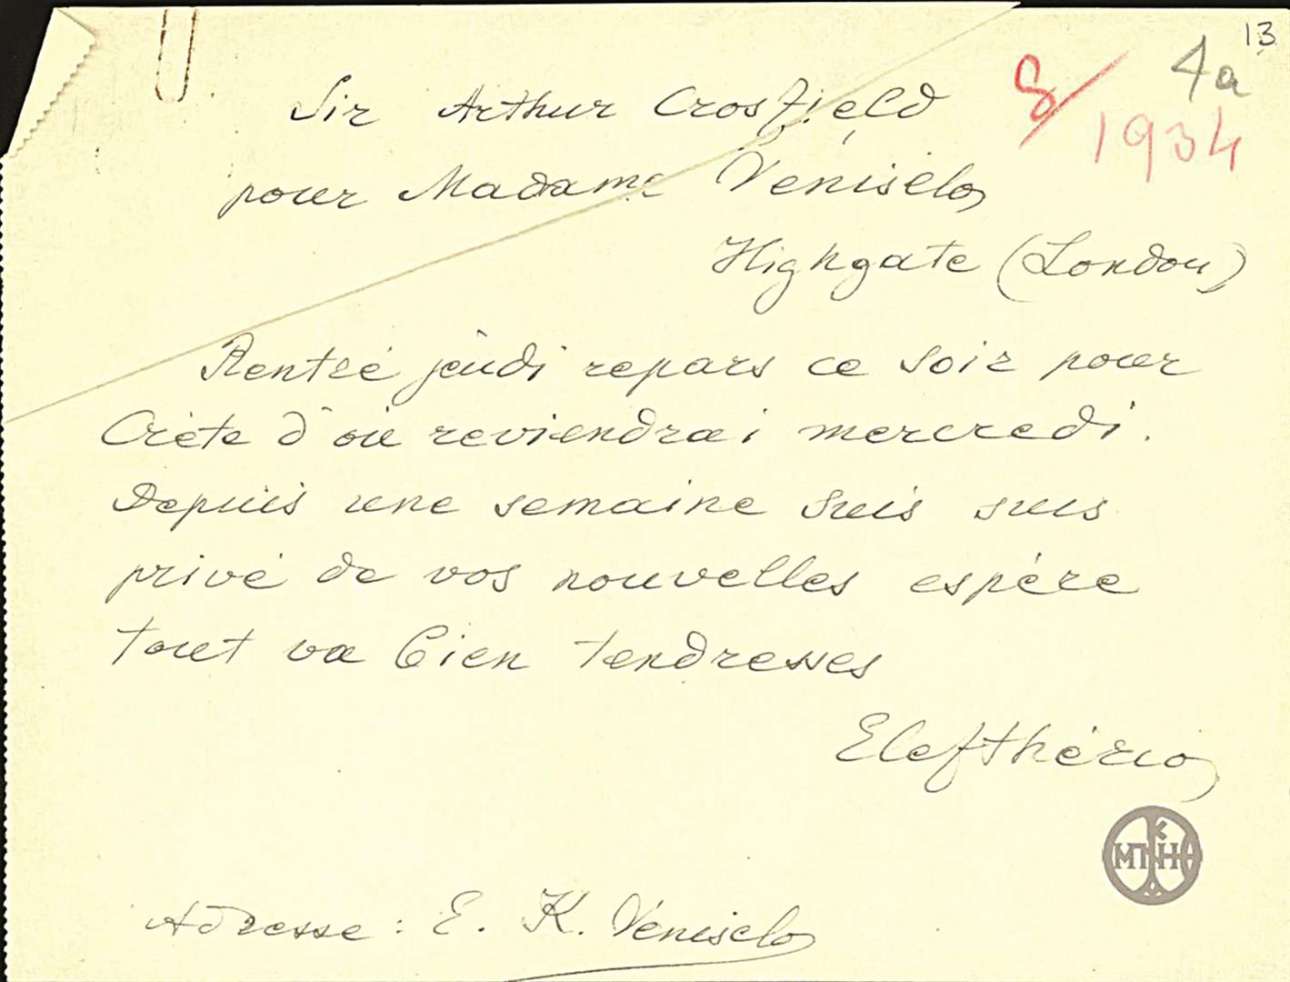 13
4a
8/1934
Sir Arthur Crosfield
pour Madame Véniselos
Highgate (London)
Rentré jeudi repars ce soir pour
Crète d'où reviendrai mercredi.
Depuis une semaine suis suis
privé de vos nouvelles espère
tout va bien tendresses
Elefthérios
Adresse : E. K. Véniselos